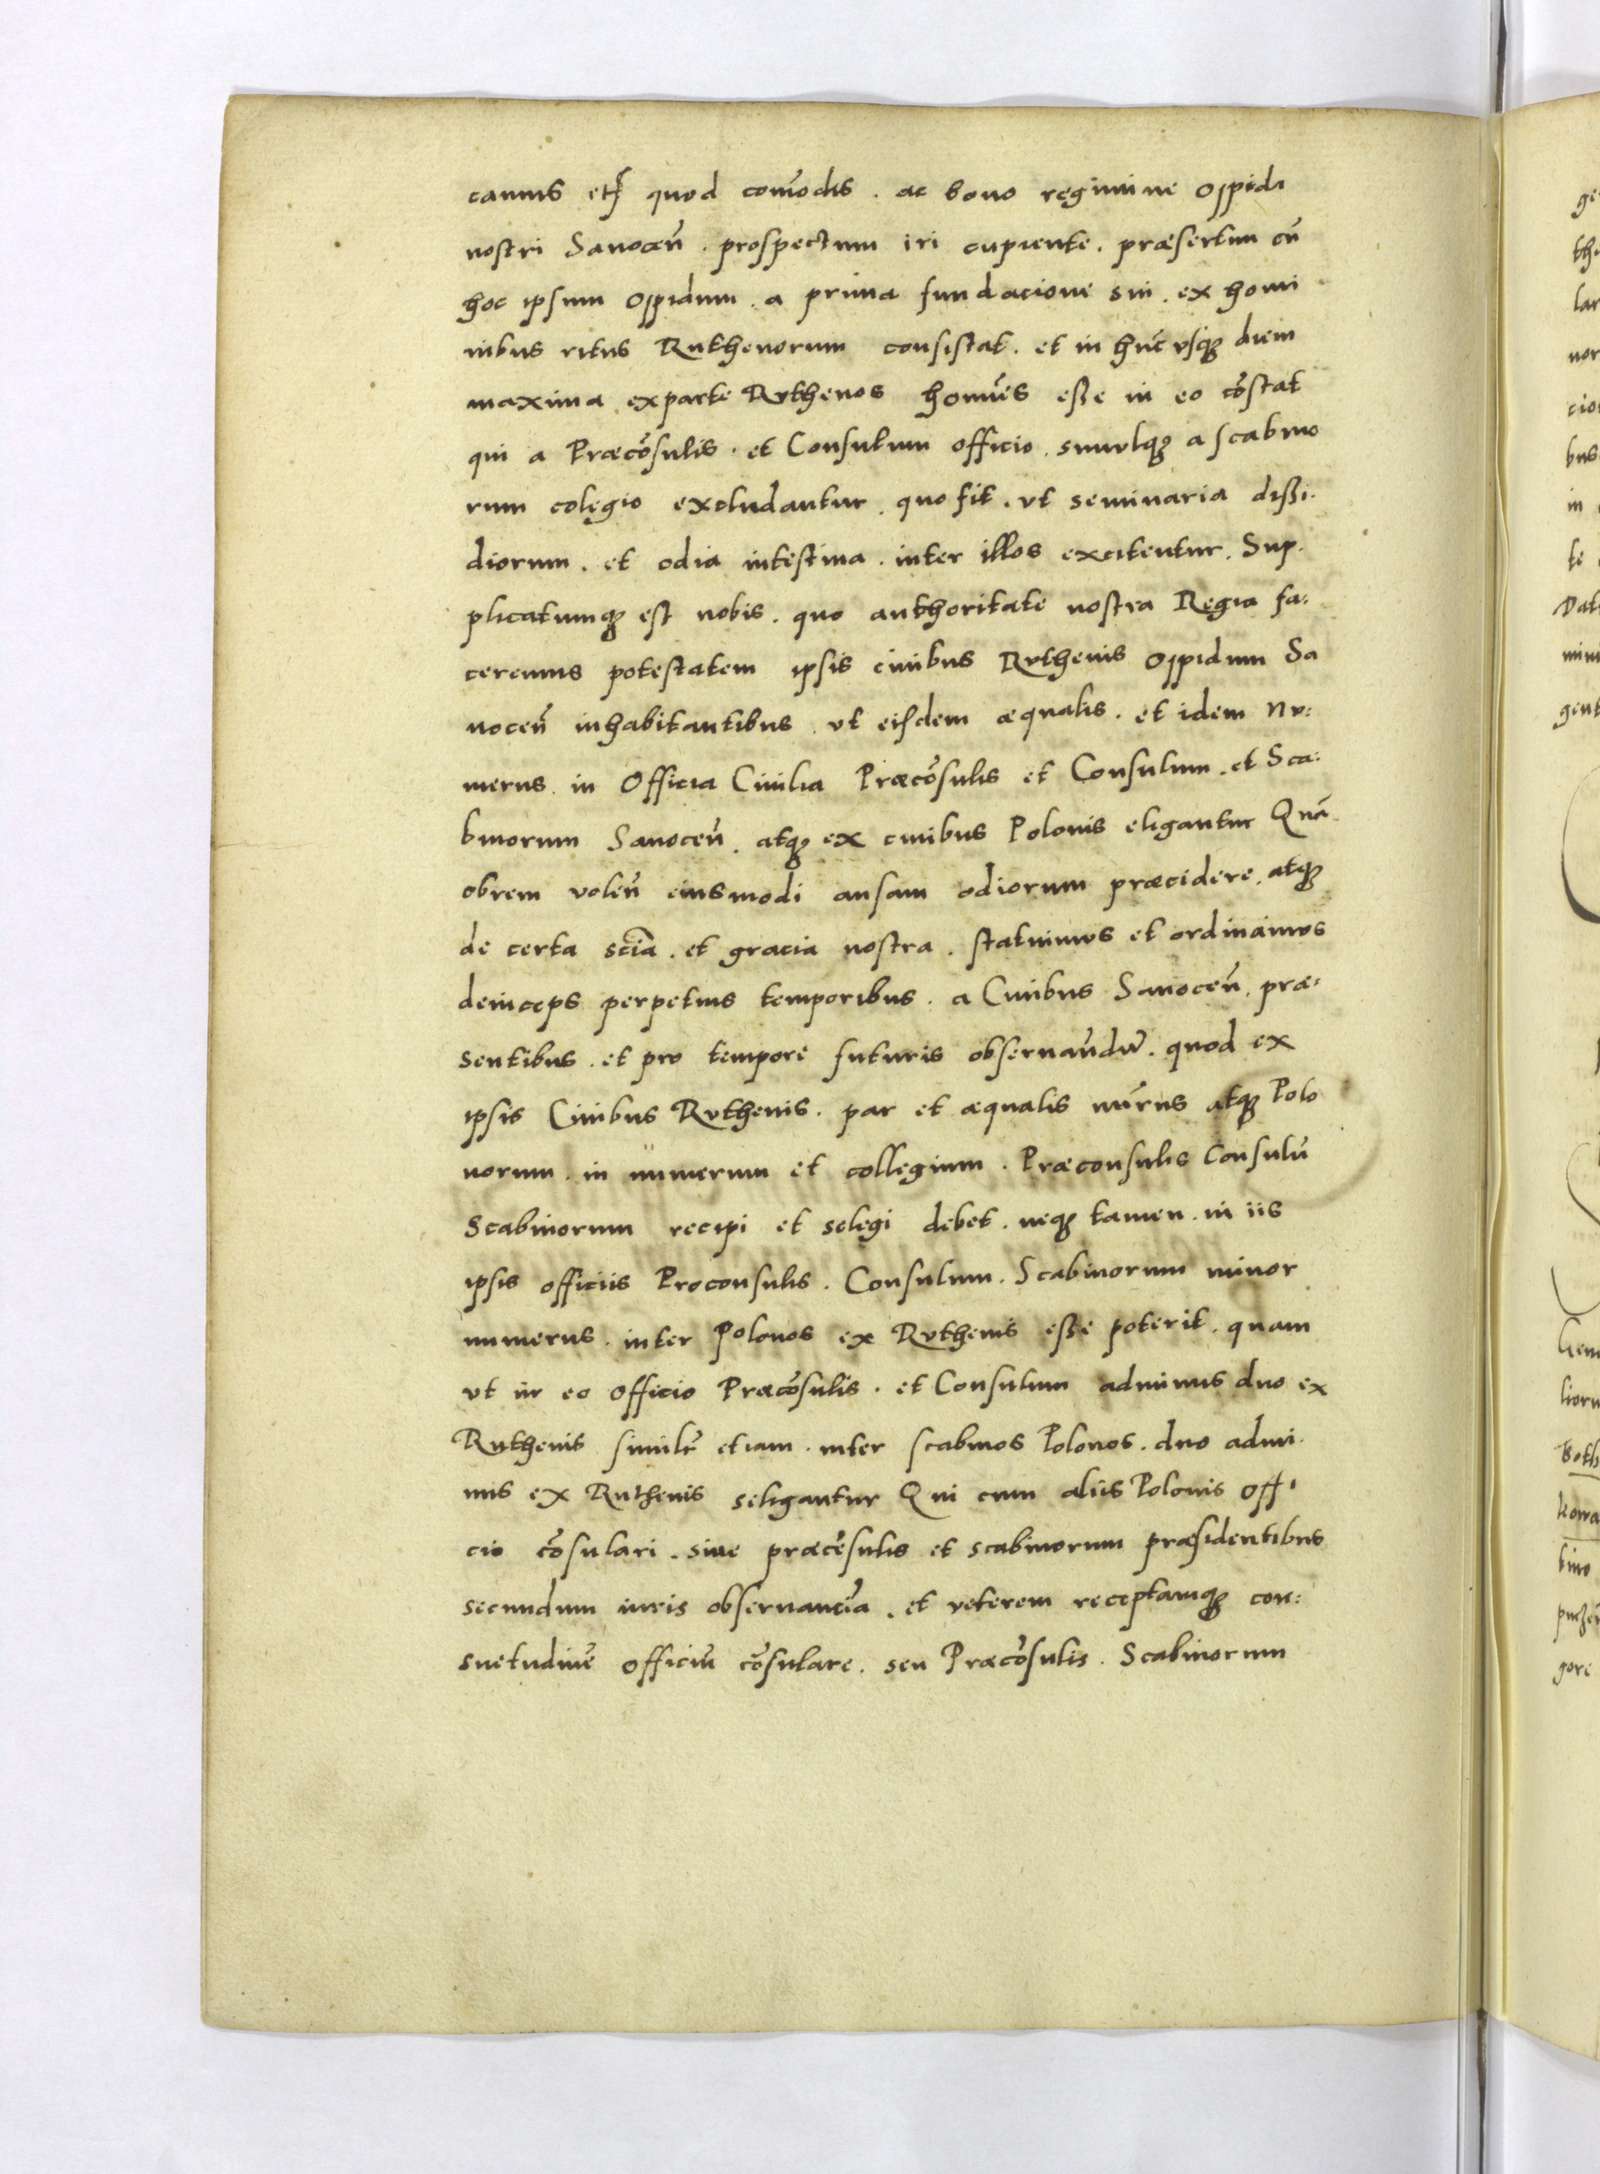 camus etc quod com̄odis . ac bono regimine oppidi
nostri Sanoceñ . prospectum iri cupiente . præsertim cũ
hoc ipsum oppidum . a prima fundacione sui . ex homi
nibus ritus Ruthenorum consistat . et in hũc vsq₃ diem
maxima ex parte Rvthenos homīes esse in eo cōstat
qui a Præcōsulis . et Consulum officio . simulq₃ a scabino
rum colegio excludantur . quo fit . vt seminaria dissi.
diorum . et odia intestina . inter illos excitentur . Sup.
plicatumq₃ est nobis . quo authoritate nostra Regia fa:
ceremus potestatem ipsis ciuibus Rvthenis oppidum Sa
noceñ inhabitantibus . vt eisdem æqualis . et idem Nv:
merus . in Officia Ciuilia Præcōsulis et Consulum . et Sca:
binorum Sanoceñ . atq₃ ex ciuibus Polonis eligantur Quā
obrem voleñ eiusmodi ansam odiorum præcidere . atq₃
de certa sciā . et gracia nostra . statuimvs et ordinamvs
deinceps perpetuis temporibus . a Ciuibus Sanoceñ . præ:
sentibus . et pro tempore futuris obseruandū . quod ex
ipsis Ciuibus Rvthenis . par et æqualis nūrus atq₃ Polo
norum . in numerum et collegium . Præconsulis Consulū
Scabinorum recipi et selegi debet . neq₃ tamen . in iis
ipsis officiis Proconsulis . Consulum . Scabinorum minor
numerus . inter Polonos ex Rvthenis esse poterit . quam
vt in eo officio Præcōsulis . et Consulum adminus duo ex
Ruthenis similr̄ etiam . inter scabinos Polonos . duo admi.
nus ex Ruthenis seligantur Qui cum aliis Polonis offi
cio cōsulari . siue præcōsulis et scabinorum præsidentibus
secundum iuris obseruanciā . et veterem receptamq₃ con:
suetudinē officiū cōsulare . seu Præcōsulis . Scabinorum